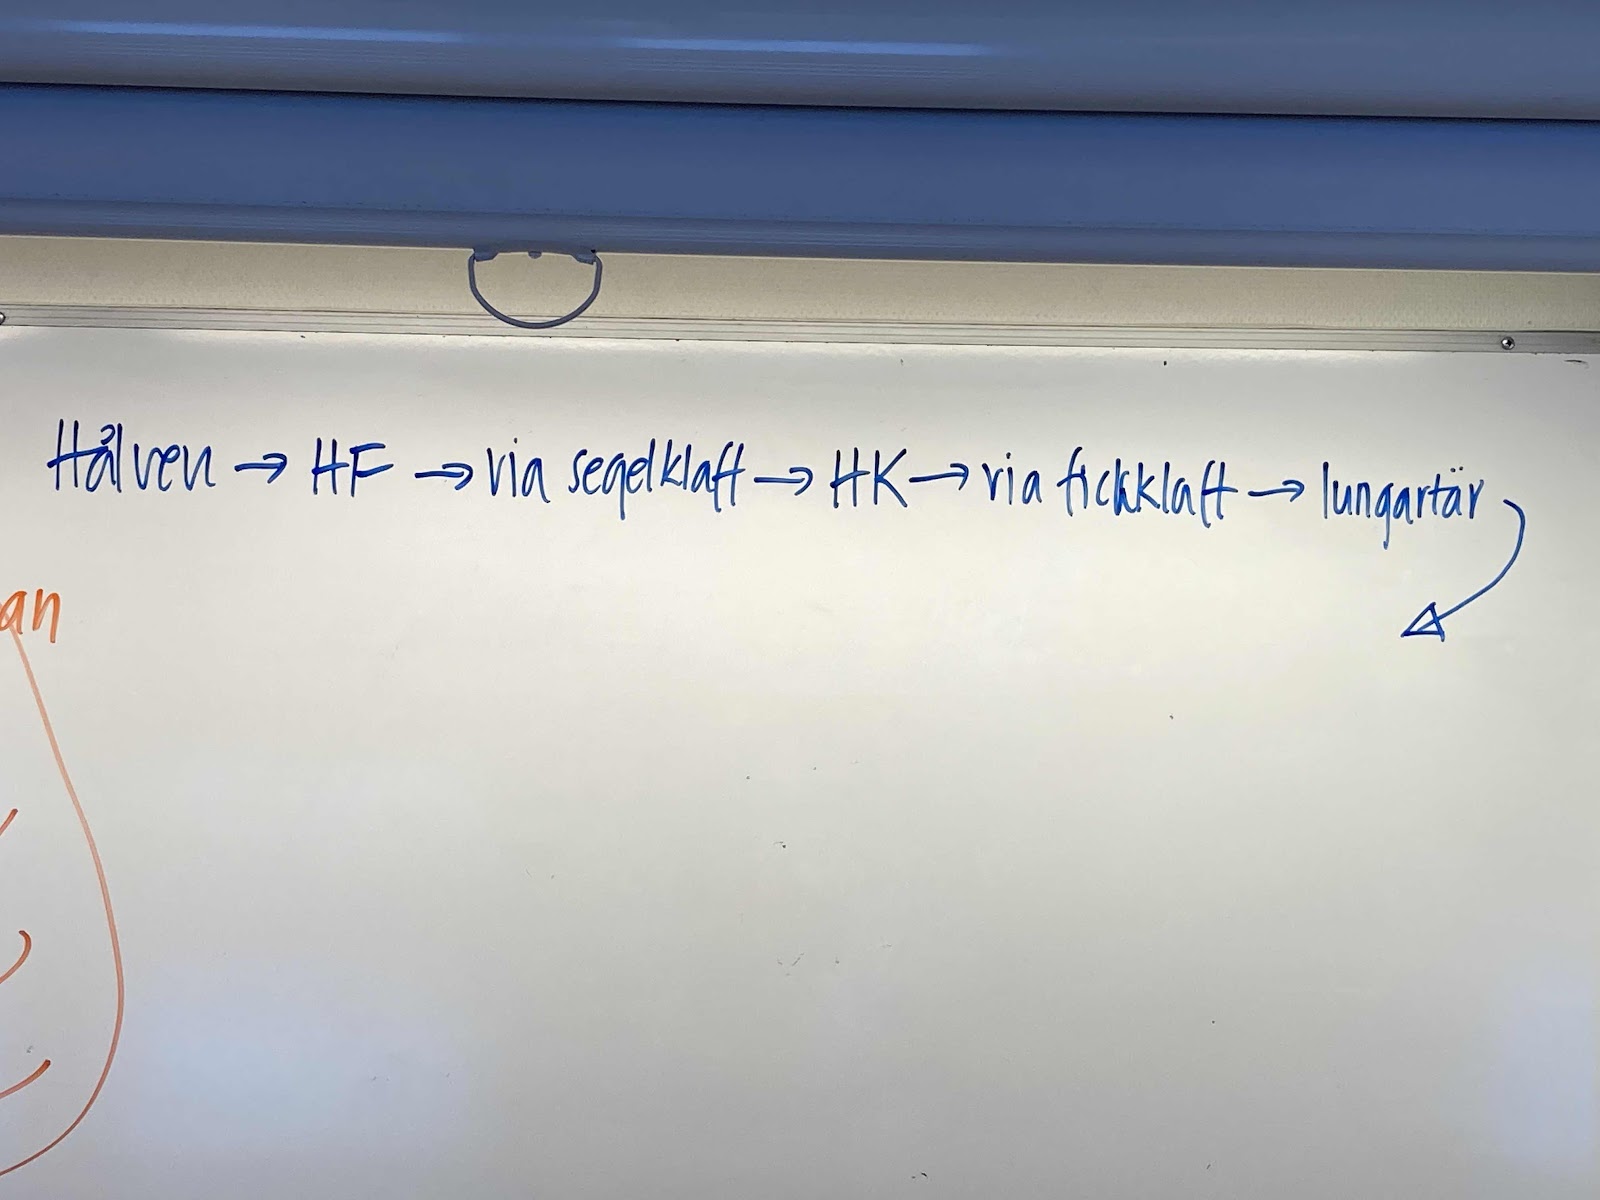 Hålven → HF → via segelklaff → HK → via fickklaff → lungartär
an